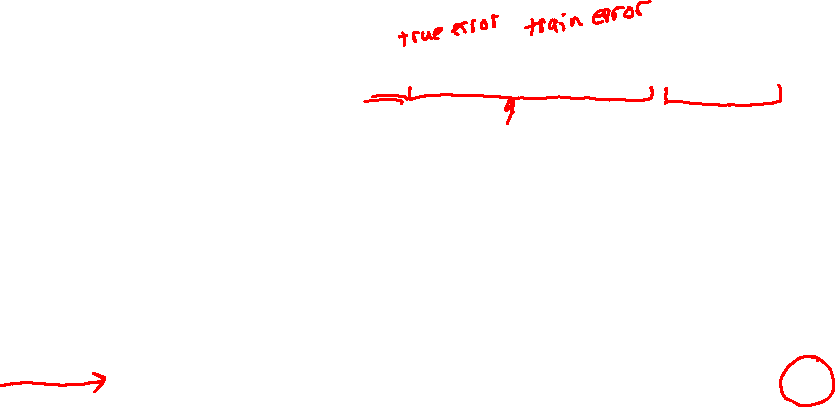 true error train error